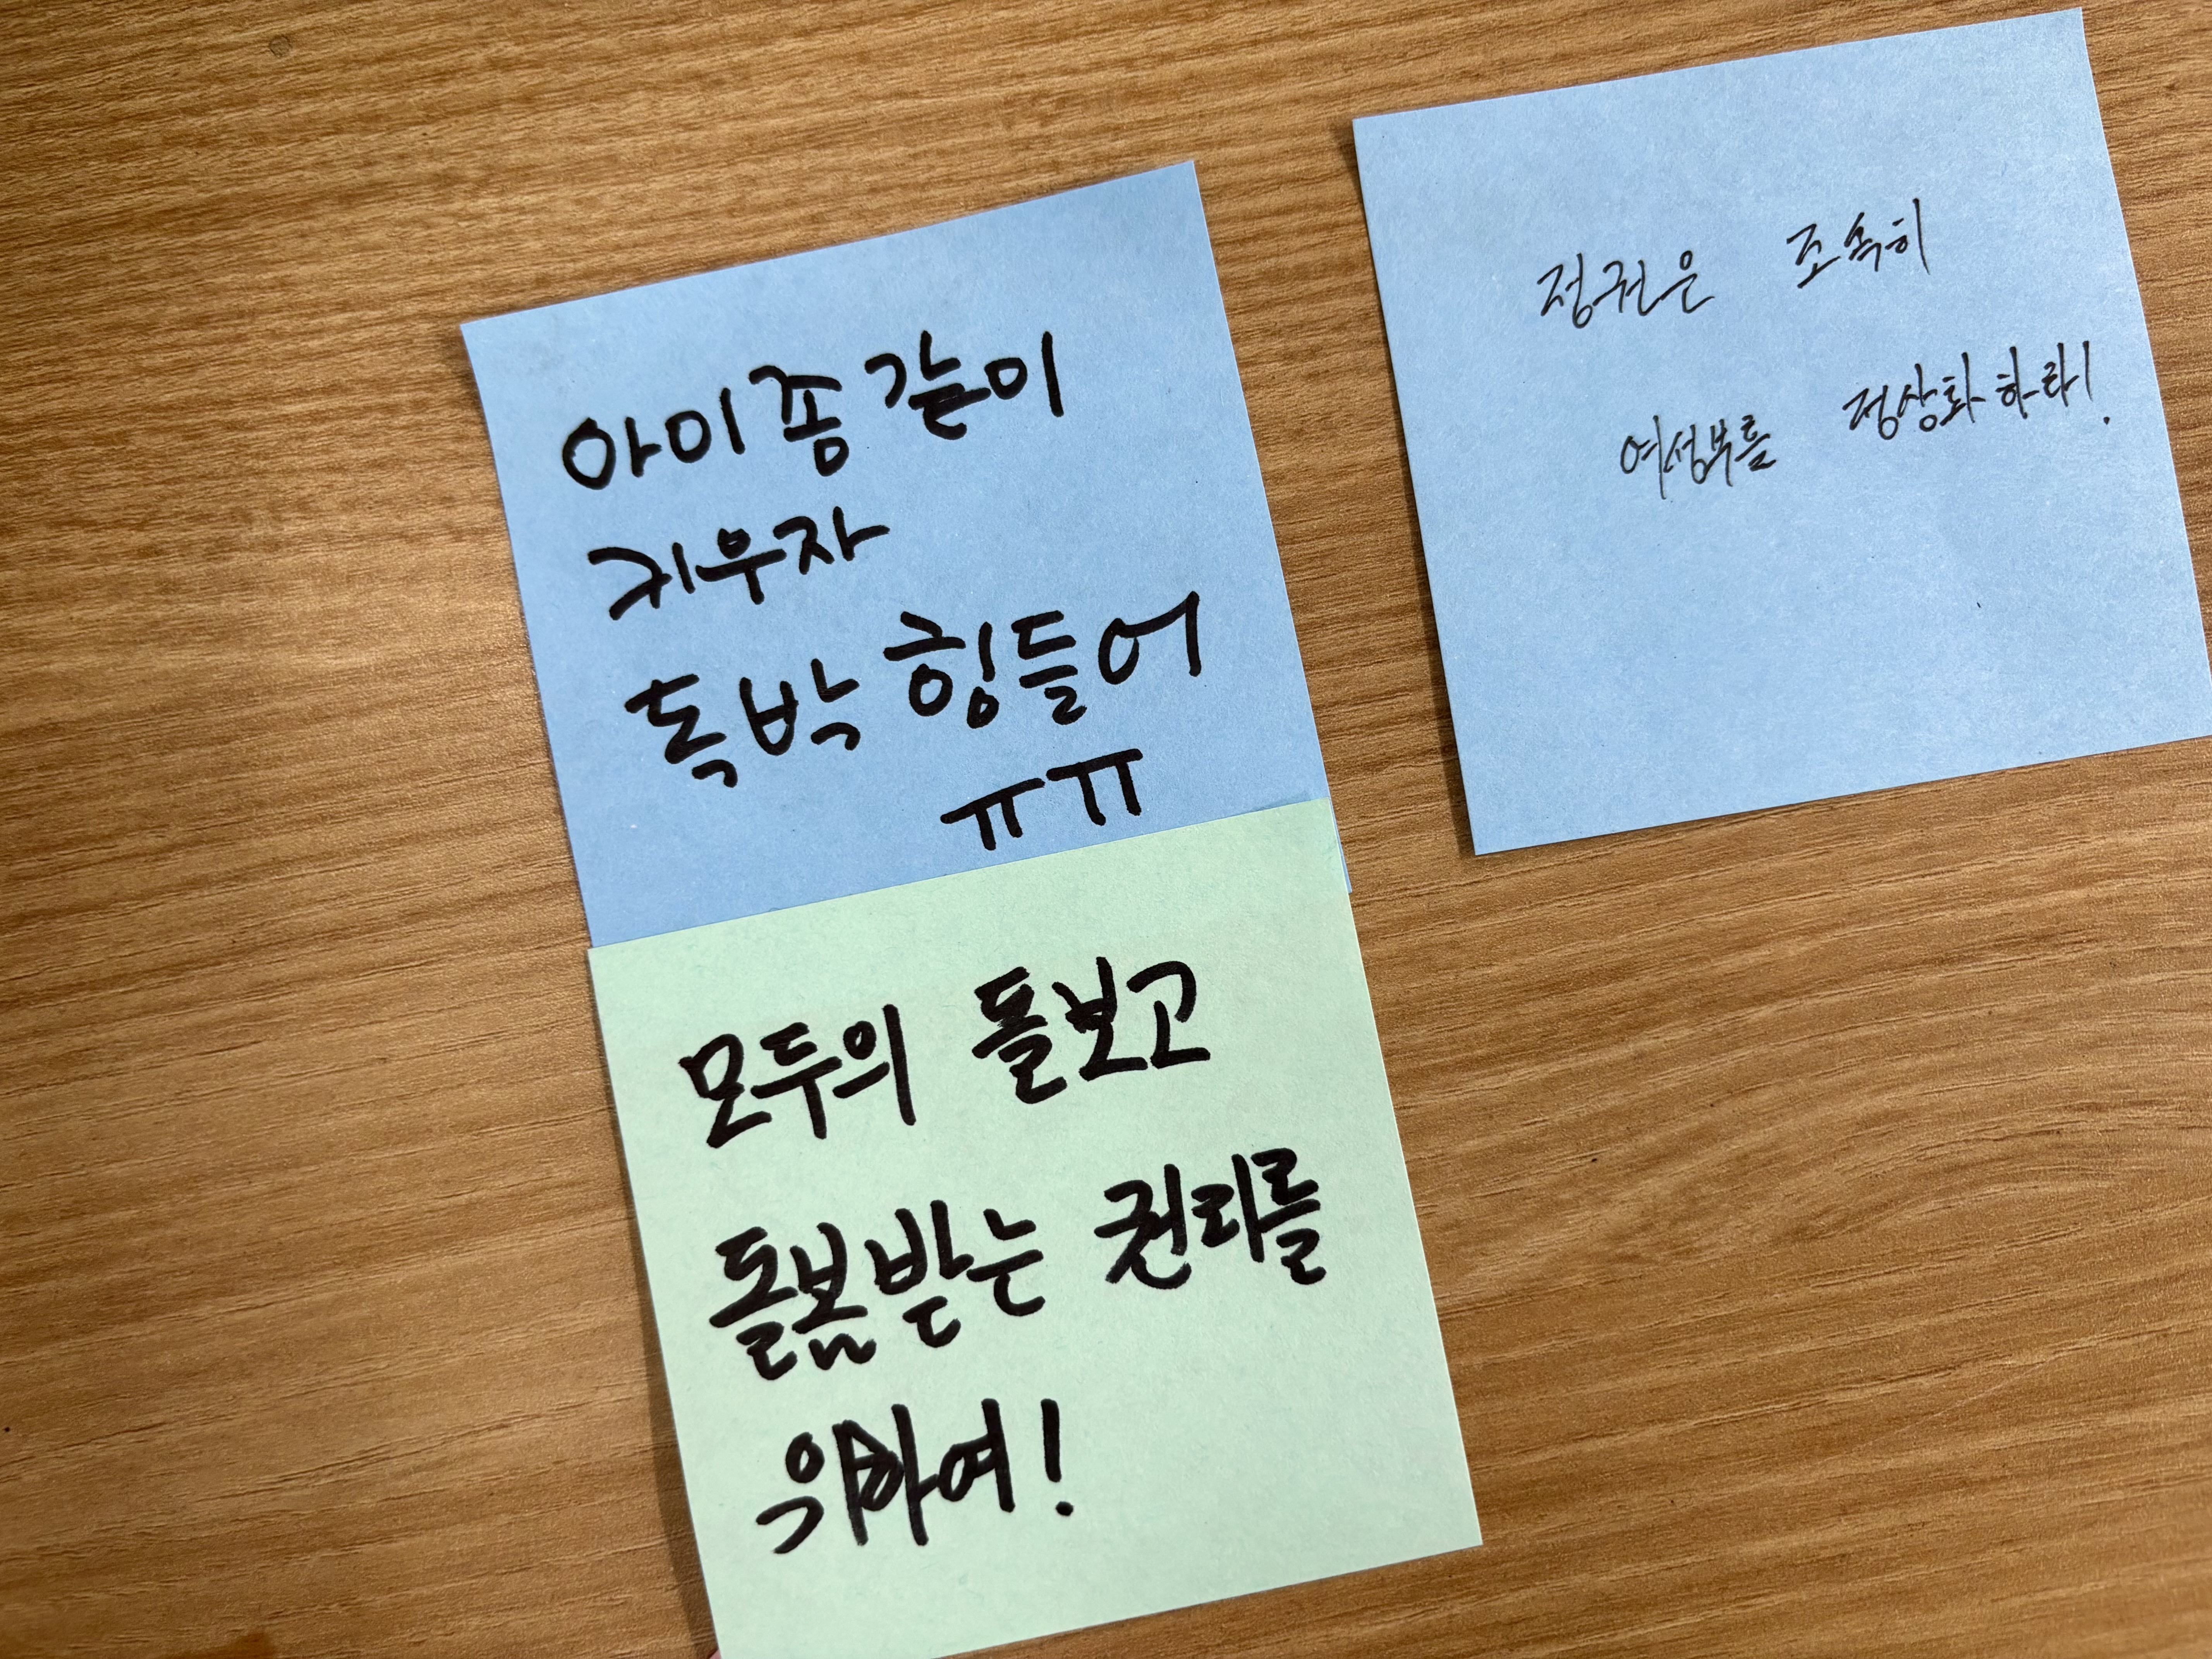 아이 좀 같이
키우자
독박 힘들어
ㅠㅠ
모두의 돌보고
돌봄받는 권리를
위하여!
정권은 조속히
여성부를 정상화하라!